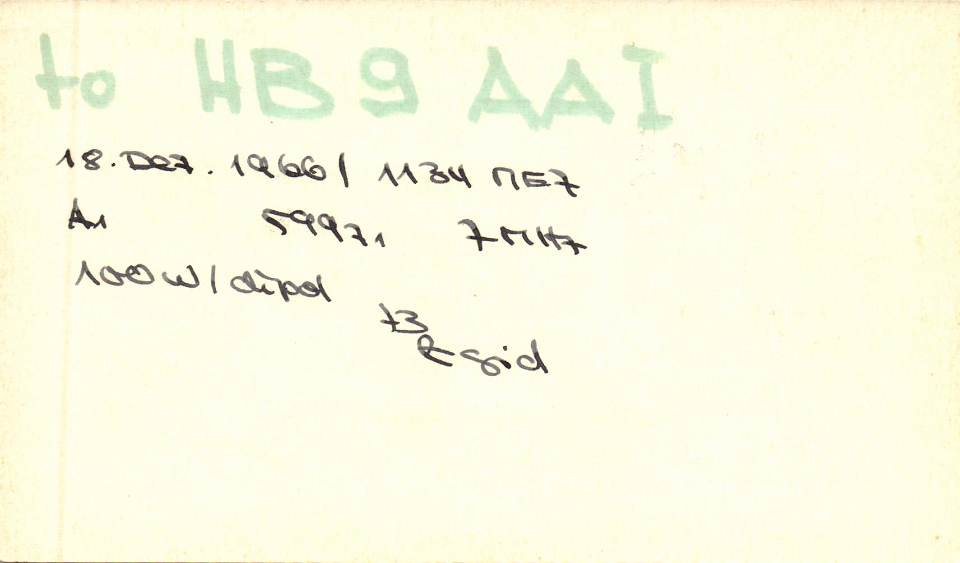 to HB9AAI
18. Dez. 1966 / 1134 MEZ
A1 599 7MHz
100W / dipol
73
Egid